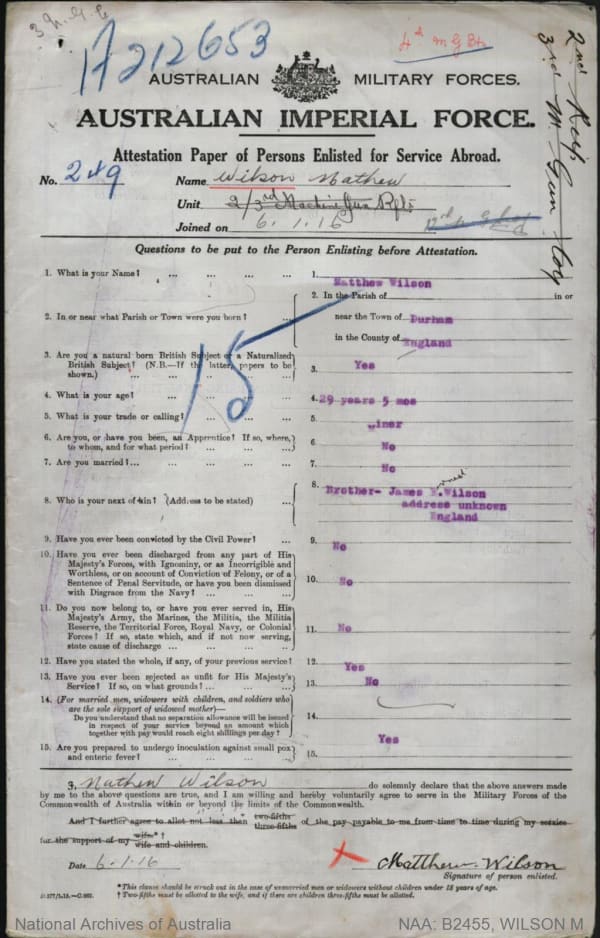 17212653
4th M G Bn
2nd Rein
3rd M. Gun Coy
AUSTRALIAN MILITARY FORCES.
AUSTRALIAN IMPERIAL FORCE.
Attestation Paper of Persons Enlisted for Service Abroad.
No. 249 Name Wilson Mathew
Unit 2/3rd Machine Gun Rfts
Joined on 6.1.16
Questions to be put to the Person Enlisting before Attestation.
1. What is your Name? ... ... ... ...
1. Matthew Wilson
2. In or near what Parish or Town were you born? ... ...
2. In the Parish of in or
near the Town of Durham
in the County of England
15
3. Are you a natural born British Subject or a Naturalized
British Subject? (N.B.—If the latter, papers to be
shown.) ... ... ... ... ...
3. Yes
4. What is your age? ... ... ... ...
4. 29 years 5 mos
5. What is your trade or calling? ... ... ...
5. miner
6. Are you, or have you been, an Apprentice? If so, where,
to whom, and for what period? ... ... ...
6. No
7. Are you married?... ... ... ... ...
7. No
8. Who is your next of kin? (Address to be stated) ...
8. Brother- James E.Wilson
ernest
address unknown
England
9. Have you ever been convicted by the Civil Power? ...
9. No
10. Have you ever been discharged from any part of His
Majesty's Forces, with Ignominy, or as Incorrigible and
Worthless, or on account of Conviction of Felony, or of a
Sentence of Penal Servitude, or have you been dismissed
with Disgrace from the Navy? ... ... ...
10. No
11. Do you now belong to, or have you ever served in, His
Majesty's Army, the Marines, the Militia, the Militia
Reserve, the Territorial Force, Royal Navy, or Colonial
Forces? If so, state which, and if not now serving,
state cause of discharge ... ... ... ...
11. No
12. Have you stated the whole, if any, of your previous service?
12. Yes
13. Have you ever been rejected as unfit for His Majesty's
Service? If so, on what grounds? ... ... ...
13. No
14. (For married men, widowers with children, and soldiers who
are the sole support of widowed mother)—
Do you understand that no separation allowance will be issued
in respect of your service beyond an amount which
together with pay would reach eight shillings per day?
14.
15. Are you prepared to undergo inoculation against small pox
and enteric fever? ... ... ... ...
15. Yes
I, Mathew Wilson do solemnly declare that the above answers made
by me to the above questions are true, and I am willing and hereby voluntarily agree to serve in the Military Forces of the
Commonwealth of Australia within or beyond the limits of the Commonwealth.
And I further agree to allot not less than two-fifths three-fifths of the pay payable to me from time to time during my service
for the support of my wife wife and children.
Date 6.1.16
Matthew Wilson
Signature of person enlisted.
* This clause should be struck out in the case of unmarried men or widowers without children under 18 years of age.
† Two-fifths must be allotted to the wife, and if there are children three-fifths must be allotted.
National Archives of Australia NAA: B2455, WILSON M